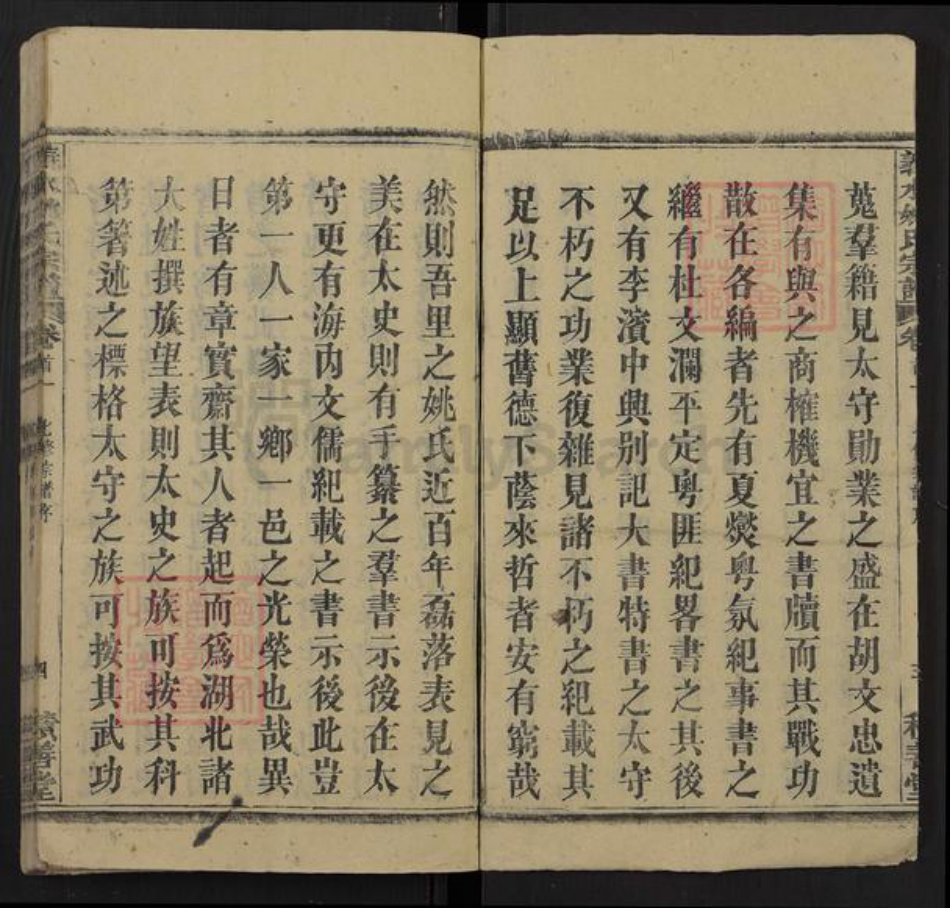 蒐羣籍見太守勛業之盛在胡文忠遺
集有與之商榷機宜之書牘而其戰功
散在各編者先有夏燮粤氛紀事書之
繼有杜文瀾平定粤匪紀畧書之其後
又有李濱中興别記大書特書之太守
不朽之功業復雜見諸不朽之紀載其
足以上顯舊德下蔭來哲者安有窮哉
然則吾里之姚氏近百年磊落表見之
美在太史則有手纂之羣書示後在太
守更有海内文儒紀載之書示後此豈
第一人一家一鄉一邑之光榮也哉異
日者有章實齋其人者起而爲湖北諸
大姓撰族望表則太史之族可按其科
第箸述之標格太守之族可按其武功
FamilySearch